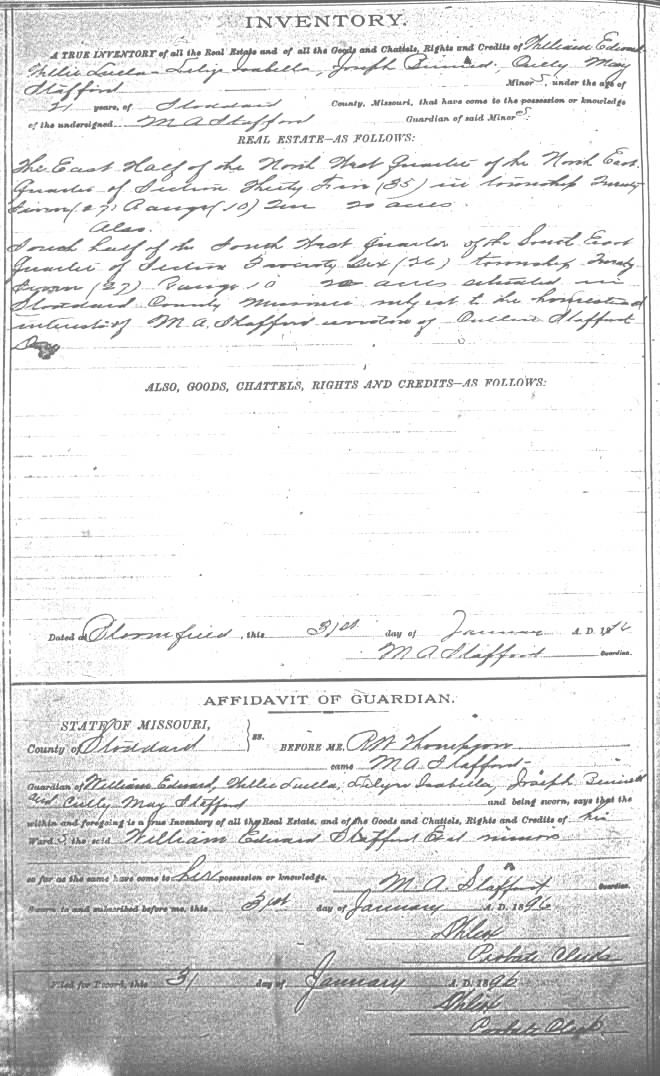 INVENTORY.
A TRUE INVENTORY of all the Real Estate and of all the Goods and Chattels, Rights and Credits of William Edward
Luella Isabella, Joseph May
Stafford Minor s, under the age of
21 years, of Stoddard County, Missouri, that have come to the possession or knowledge
of the undersigned M A Stafford Guardian of said Minor s
REAL ESTATE—AS FOLLOWS:
The East Half of the North West Quarter of the North East
Quarter of Section Thirty Five (35) in township Twenty
Seven (27) Range (10) Ten 20 acres
Also.
South half of the South West Quarter of the South East
Quarter of Section Twenty Six (26) township Twenty
Seven (27) Range 10 20 acres situated in
Stoddard County Missouri subject to the homestead
interest of M. A. Stafford widow of Stafford
ALSO, GOODS, CHATTELS, RIGHTS AND CREDITS—AS FOLLOWS:
Dated at Bloomfield, this 31st day of January A. D. 18
M A Stafford Guardian.
AFFIDAVIT OF GUARDIAN.
STATE OF MISSOURI,
County of Stoddard } ss. BEFORE ME, R W Thompson
came M A Stafford
Guardian of William Edward, Luella, Isabella, Joseph
and May Stafford and being sworn, says that the
within and foregoing is a true Inventory of all the Real Estate, and of the Goods and Chattels, Rights and Credits of his
Ward s, the said William Edward Stafford Et al minors
so far as the same have come to her possession or knowledge. M. A. Stafford Guardian.
Sworn to and subscribed before me, this 31st day of January A. D. 1896
Probate Clerk
Filed for Record, this 31 day of January A. D. 1896
Probate Clerk